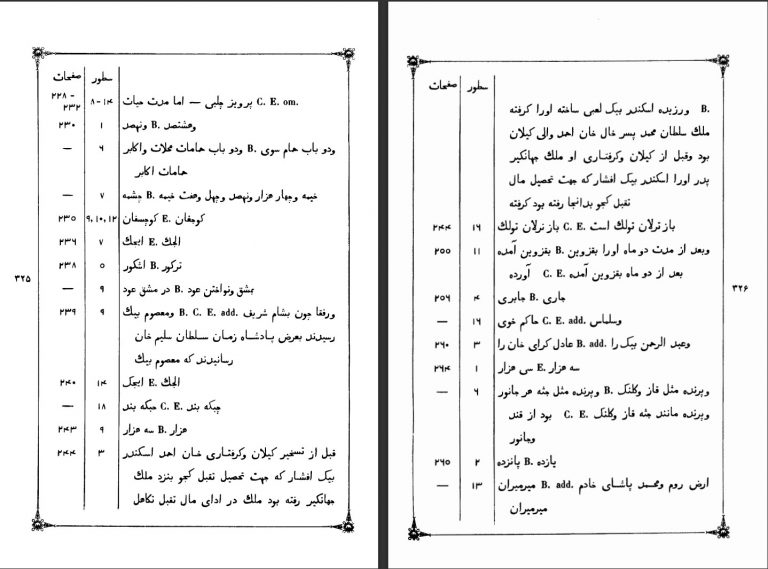 سطور صفحات
C. E. om. پرویز چلبی — اما مدت حیات ۸-۱۴ ۲۲۸ -
۲۳۲
وهشتصد B. ونهصد ۱ ۲۳۰
ودو باب حمام سوی B. ودو باب حمامات محلات واکابر ۶ —
حمامات اکابر
خیمه وچهار هزار ونهصد وچهل وهفت خیمه B. چشمه ۷ —
کوجغان E. کوجسفان ۹,۱۰,۱۲ ۲۳۵
الجك E. ایجك ۷ ۲۳۶
ترکور B. اشکور ۵ ۲۳۸
بمشق ونواختن عود B. در مشق عود ۹ —
ورفقا چون بشام شریف B. C. E. add. ومعصوم بیك ۹ ۲۳۹
رسیدند بعرض پادشاه زمان سلطان سلیم خان
رسانیدند که معصوم بیك
الجك E. ایجك ۱۴ ۲۴۰
چیکه بند C. E. جبکه بند ۱۸ —
هزار B. سه هزار ۹ ۲۴۳
قبل از تسخیر کیلان وکرفتاری خان احمد اسکندر ۳ ۲۴۴
بیك افشار که جهت تحصیل تقبل کجو بنزد ملك
جهانکیر رفته بود ملك در ادای مال تقبل تکاهل
۳۲۵
سطور صفحات
B. ورزیده اسکندر بیك لعبی ساخته اورا کرفته
ملك سلطان محمد پسر خال خان احمد والی کیلان
بود وقبل از کیلان وکرفتاری او ملك جهانکیر
پدر اورا اسکندر بیك افشار که جهت تحصیل مال
تقبل کجو بدانجا رفته بود کرفته
باز ترلان تولك است C. E. باز ترلان تولك ۱۶ ۲۴۴
وبعد از مدت دو ماه اورا بقزوین B. بقزوین آمده ۱۱ ۲۵۵
بعد از دو ماه بقزوین آمده C. E. آورده
جاری B. جابری ۴ ۲۵۶
وسلماس C. E. add. حاکم خوی ۱۶ —
وعبد الرحمن بیك را B. add. عادل کرای خان را ۳ ۲۶۰
سه هزار E. سی هزار ۱ ۲۶۴
وپرنده مثل قاز وکلنك B. وپرنده مثل جثه هر جانور ۶ —
وپرنده مانند جثه قاز وکلنك C. E. بود از قند
وجانور
یازده B. پانزده ۲ ۲۶۵
ارض روم ومحمد پاشای خادم B. add. میرمیران ۱۳ —
میرمیران
۳۲۶